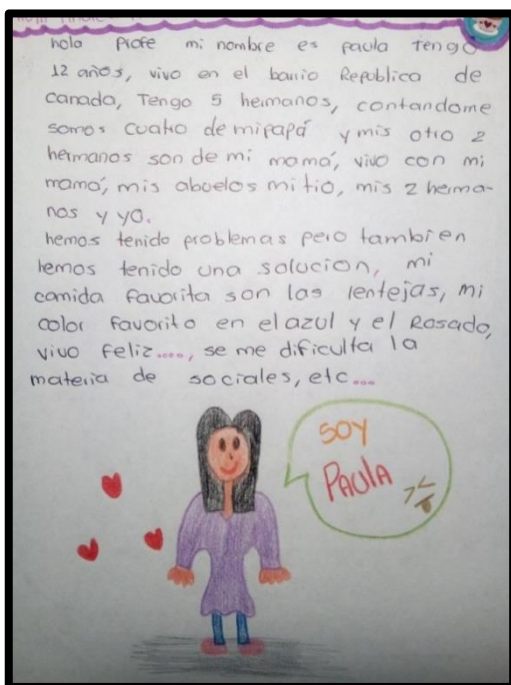 hola Profe mi nombre es paula tengo
12 años, vivo en el barrio Republica de
canada, Tengo 5 hermanos, contandome
somos cuatro de mi papá y mis otro 2
hermanos son de mi mamá, vivo con mi
mamá, mis abuelos mi tio, mis 2 herma-
nos y yo.
hemos tenido problemas pero tambien
hemos tenido una solucion, mi
comida favorita son las lentejas, mi
color favorito en el azul y el Rosado,
vivo feliz...., se me dificulta la
materia de sociales, etc...
SOY
PAULA